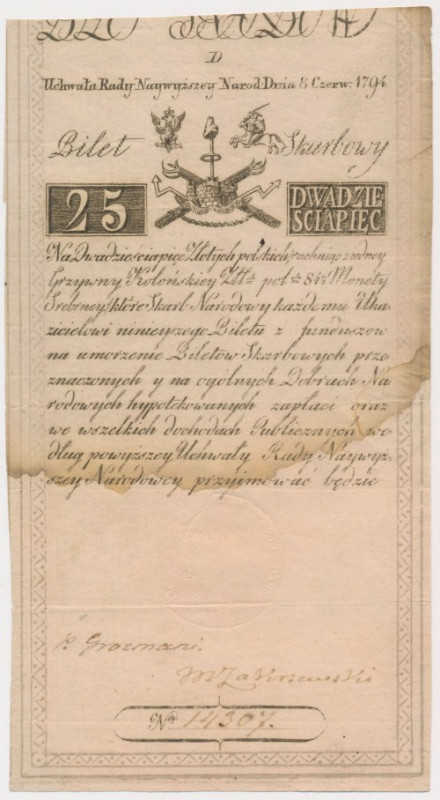 D
Uchwała Rady Naywyższey Narod: Dnia 8 Czerw: 1794
Bilet Skarbowy
25 DWADZIE SCIAPIĘC
Na Dwadzieściapięc Złotych polskich rachuiąc z iedney
Grzywny Kolońskiey Złt: pol: 84½ Monety
Srebrney, które Skarb Narodowy każdemu Oka-
zicielowi ninieyszego Biletu z funduszow
na umorzenie Biletów Skarbowych prze
znaczonych y na ogólnych Dobrach Na
rodowych hypotekowanych zapłaci oraz
we wszelkich dochodach Publicznych we-
dług powyższey Uchwały Rady Naywyż-
szey Narodowey przyimować będzie
No 14307.